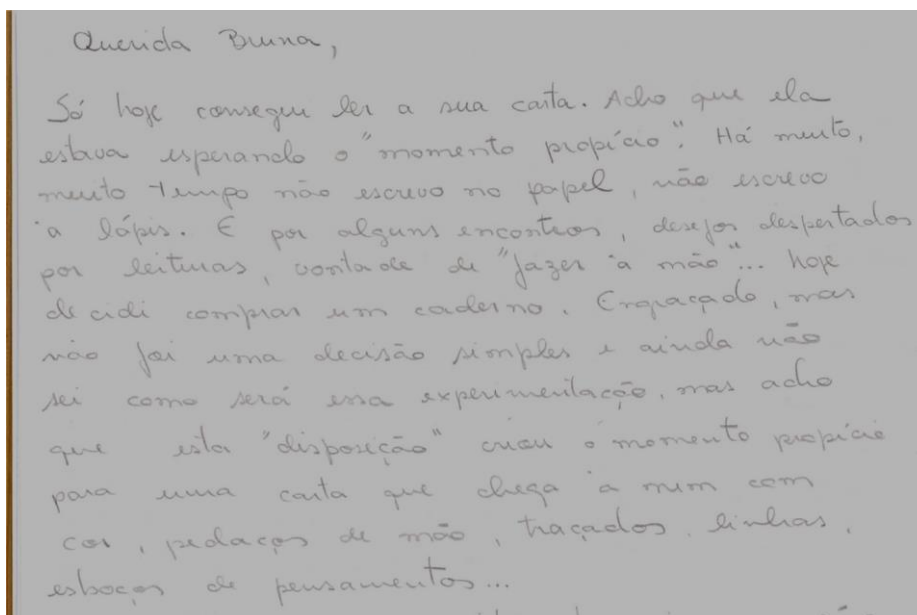 Querida Bruna,
Só hoje consegui ler a sua carta. Acho que ela
estava esperando o "momento propício". Há muito,
muito tempo não escrevo no papel, não escrevo
à lápis. E por alguns encontros, desejos despertados
por leituras, vontade de "fazer à mão"... hoje
decidi comprar um caderno. Engraçado, mas
não foi uma decisão simples e ainda não
sei como será essa experimentação, mas acho
que esta "disposição" criou o momento propício
para uma carta que chega à mim com
cor, pedaços de mão, traçados, linhas,
esboços de pensamentos...